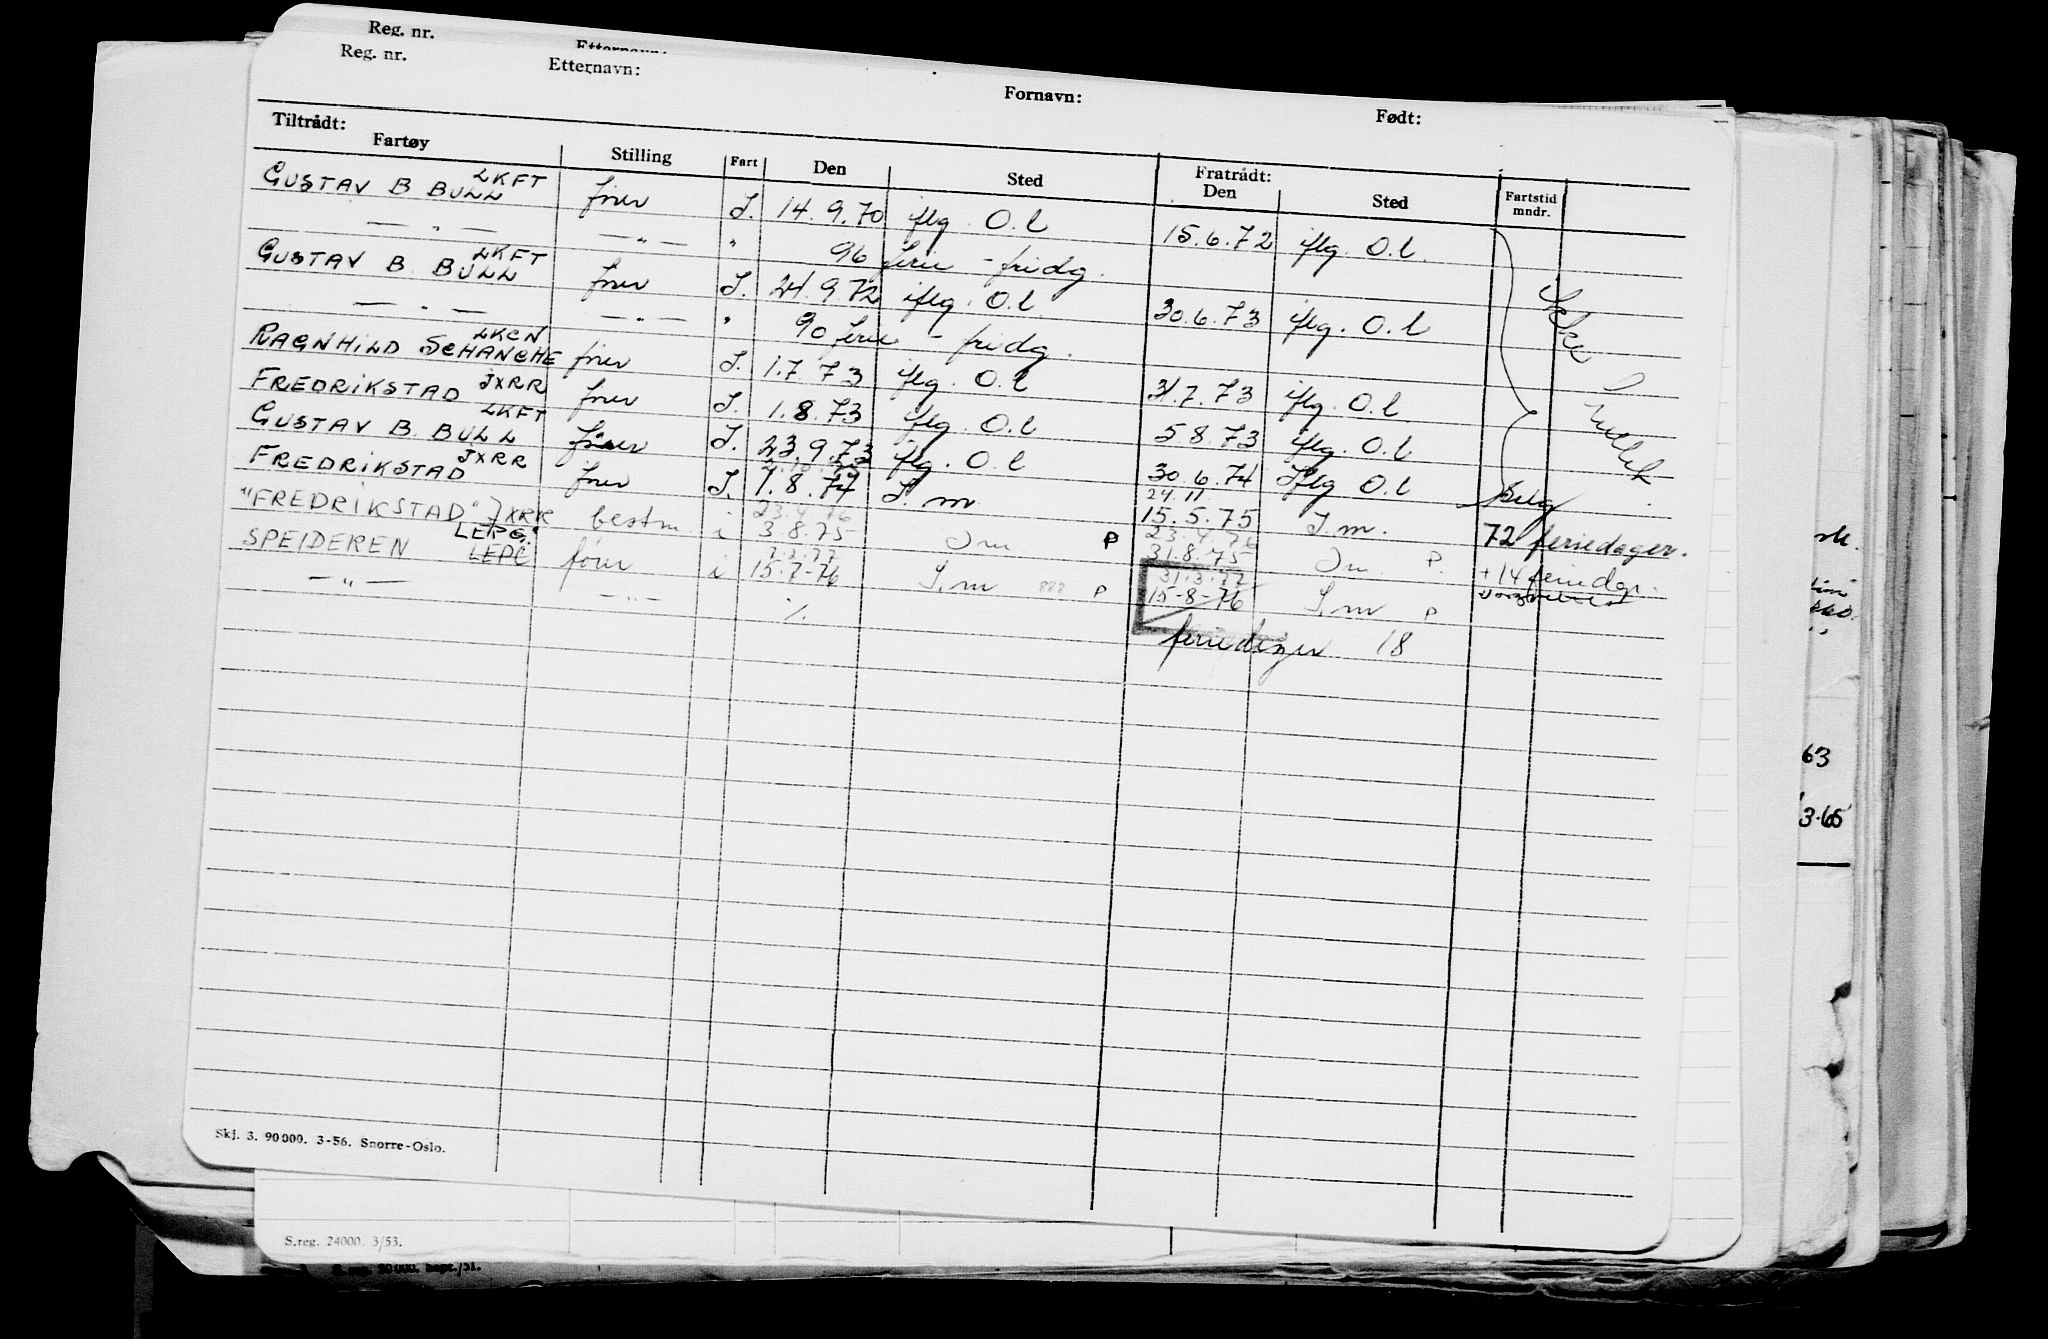 Reg. nr.
Reg. nr. Etternavn: Fornavn: Født:
Tiltrådt: Fratrådt:
Fartøy Stilling Fart Den Sted Den Sted Fartstid mndr.
GUSTAV B BULL LKFT fører I. 14.9.70 iflg. O.l 15.6.72 iflg. O.l.
— " — — " — " 96 ferie - fridg.
GUSTAV B. BULL LKFT fører I. 21.9.72 iflg. O.l. 30.6.73 iflg. O.l
— " — — " — " 90 ferie - fridg.
RAGNHILD SCHANCHE LKCN fører I. 1.7.73 iflg. O.l 31.7.73 iflg. O.l
FREDRIKSTAD JXRR fører I. 1.8.73 iflg. O.l 5.8.73 iflg. O.l
GUSTAV B. BULL LKFT fører I. 23.9.73 iflg. O.l 30.6.74 iflg O.l
FREDRIKSTAD JXRR fører I. 1.8.74 I.m 24.11 15.5.75 I.m. 72 feriedager.
"FREDRIKSTAD" JXRR bestm. i 23.4.76 3.8.75 I m P 31.8.75 I m P. +14 feriedgr.
SPEIDEREN LEPG. LEPC fører i 15-7-76 I.m 888 P 31.3.77 15-8-76 I.m P
— " — — " — % feriedager 18
63
3-65
Skj. 3. 90000. 3-56. Snorre-Oslo.
S.reg. 24000. 3/53.